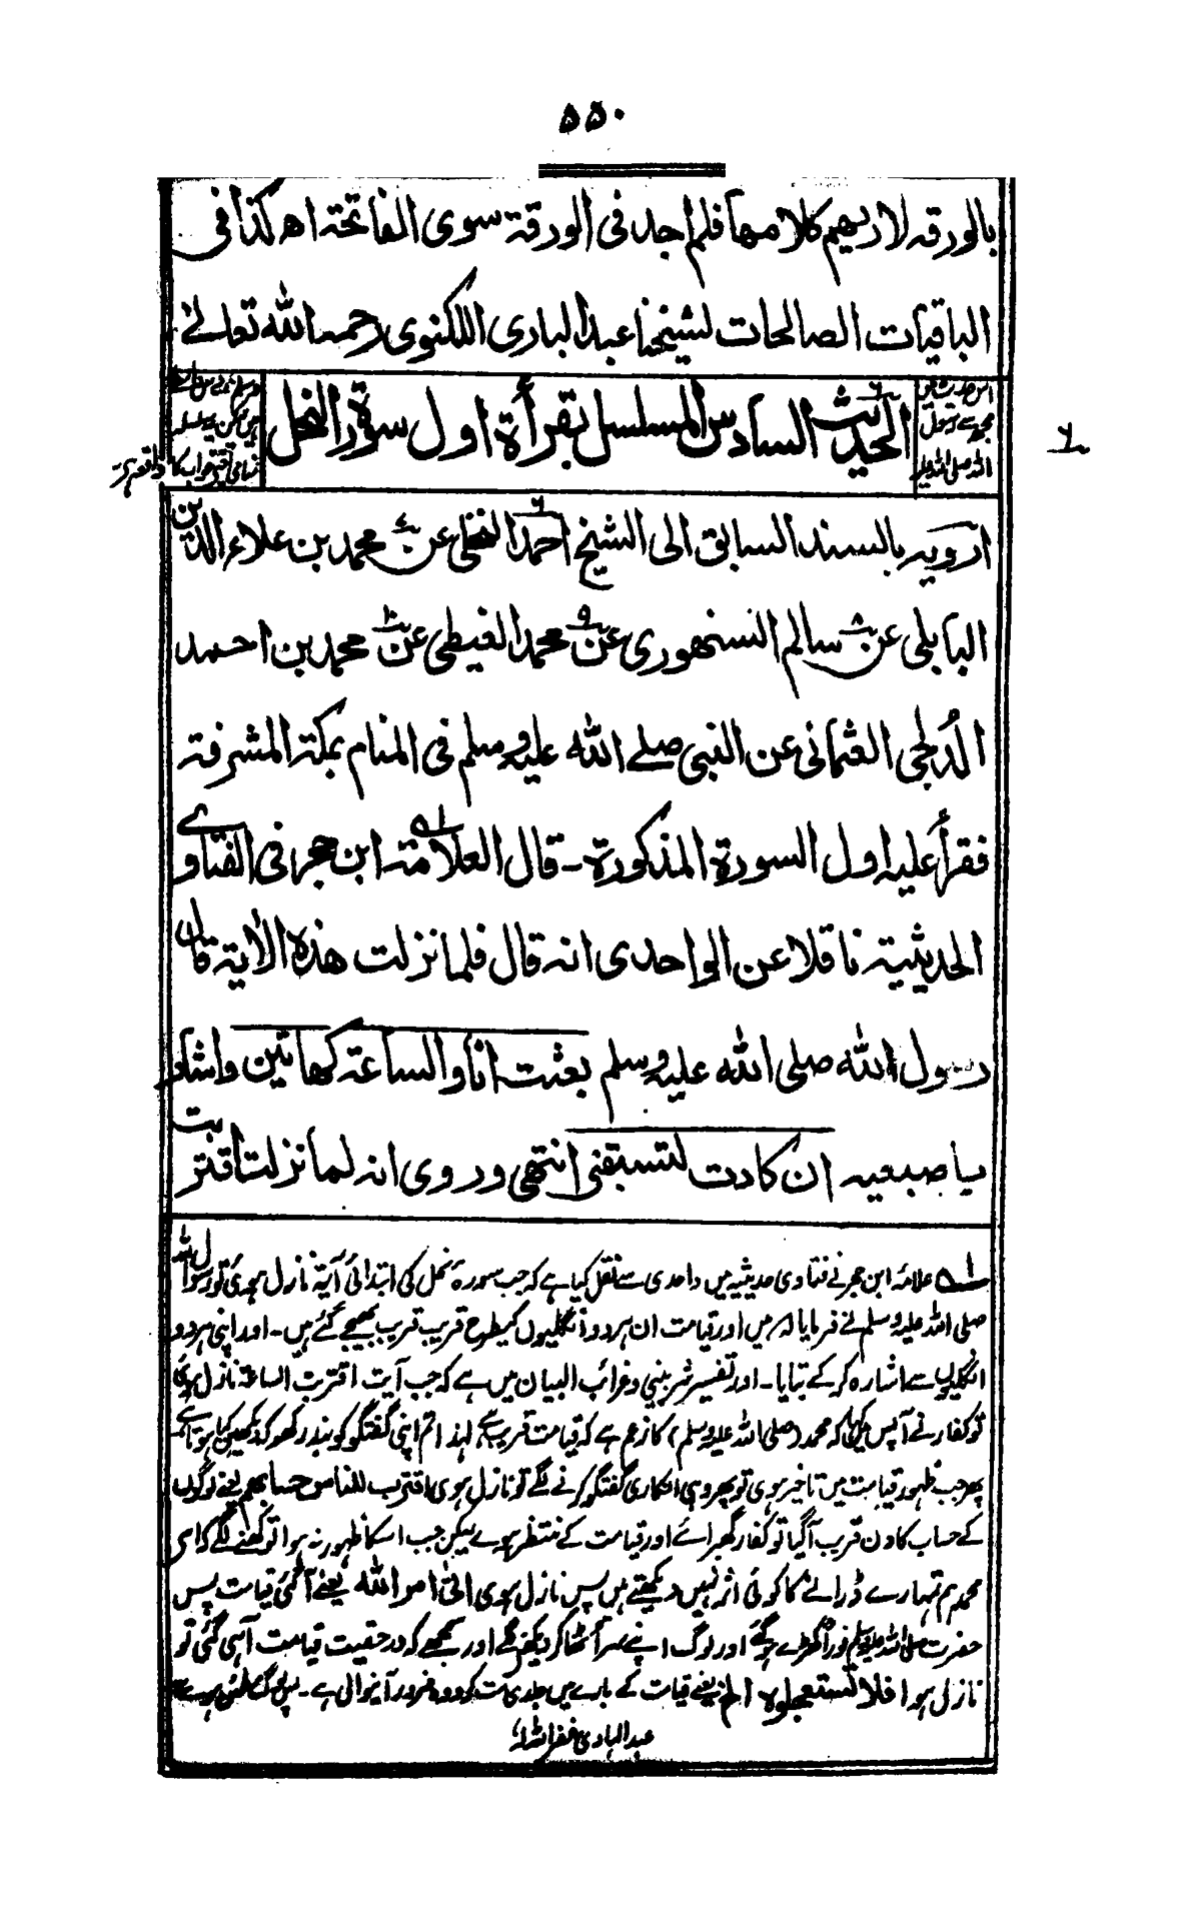 ۵۵۰
بالورقة لاريهم كلامها فلم اجد فى الورقة سوى الفاتحة اھ كذا فى
الباقيات الصالحات لشيخنا عبد البارى اللكنوى رحمه الله تعالے
الحديث السادس المسلسل بقرأة اول سورة النحل
۶
ارويه بالسند السابق الى الشيخ احمد النخلى عن محمد بن علاء الدين
البابلى عن سالم السنهورى عن محمد الغيطى عن محمد بن احمد
الدلجى العثمانى عن النبى صلے الله عليه وسلم فى المنام بمكة المشرفة
فقرأ عليه اول السورة المذكورة ـ قال العلامة ابن حجر فى الفتاوے
الحديثية ناقلا عن الواحدى انه قال فلما نزلت هذه الأية قال
رسول الله صلى الله عليه وسلم بعثت انا والساعة كهاتين واشار
باصبعيه ان كادت لتسبقنى انتهى وروى انه لما نزلت اقتربت
لـه علامہ ابن حجر نے فتاوی حدیثیہ میں واحدی سے نقل کیا ہے کہ جب سورۂ نحل کی ابتدائی آیۃ نازل ہوئی تو رسول اللہ
صلی اللہ علیہ وسلم نے فرمایا کہ میں اور قیامت ان ہر دو انگلیوں کیطرح قریب قریب بھیجے گئے ہیں ۔ اور اپنی ہر دو
انگلیوں سے اشارہ کر کے بتایا ۔ اور تفسیر شربینی وغرائب البیان میں ہے کہ جب آیت اقتربت الساعة نازل ہوئی
تو کفار نے آپس میں کہا کہ محمد (صلی اللہ علیہ وسلم) کا زعم ہے کہ قیامت قریب ہے لہذا تم اپنی گفتگو کو بند رکھو کہ دیکھیں کیا ہوتا ہے
پھر جب ظہور قیامت میں تاخیر ہوی تو پھر وہی انکاری گفتگو کرنے لگے تو نازل ہوی اقترب للناس حسابهم یعنے لوگوں
کے حساب کا دن قریب آگیا تو کفار گھبرائے اور قیامت کے منتظر رہے لیکن جب اسکا ظہور نہ ہوا تو کہنے لگے کہ اے
محمد ہم تمہارے ڈرانے کا کوئی اثر نہیں دیکھتے ہیں پس نازل ہوی اتى امر الله یعنے آگئی قیامت پس
حضرت صلی اللہ علیہ وسلم فوراً کھڑے ہوگئے اور لوگ اپنے سر اٹھا کر دیکھنے لگے اور سمجھے کہ در حقیقت قیامت آہی گئی تو
نازل ہوا فلا تستعجلوه الخ یعنے قیامت کے بارے میں جلدی مت کرو وہ ضرور آنیوالی ہے ۔ پس لوگ مطمئن ہوے
عبد الہادی غفر اللہ لہ